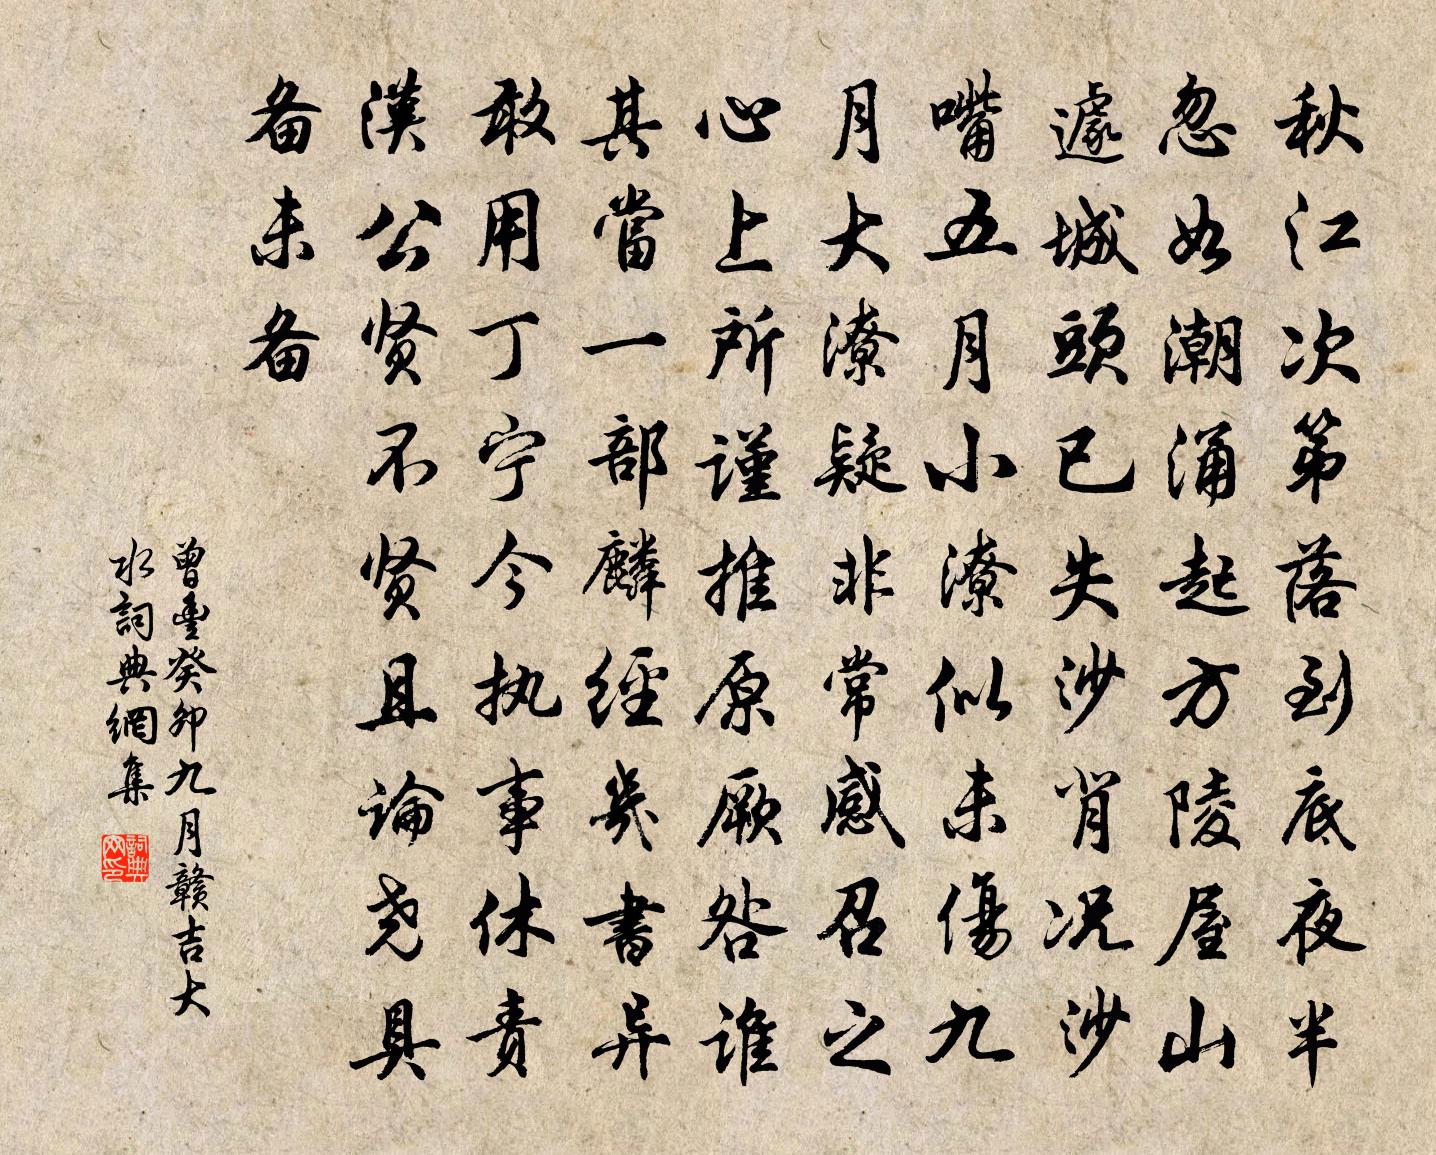 秋江次第落到底夜半
忽如潮涌起方陵屋山
遽城頭已失沙肖况沙
嘴五月小潦似未傷九
月大潦疑非常感召之
心上所謹推原厥咎谁
其當一部麟經幾書异
敢用丁宁今执事休责
漢公贤不贤且論尧具
备未备
曾豐癸卯九月赣吉大
水詞典網集
詞典网印